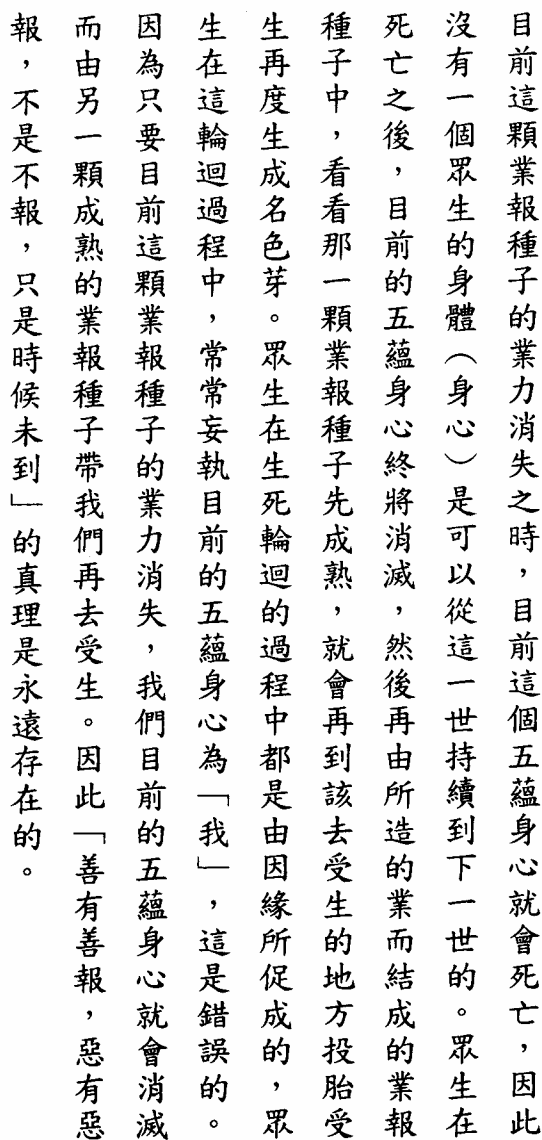 目前這顆業報種子的業力消失之時，目前這個五蘊身心就會死亡，因此
沒有一個眾生的身體（身心）是可以從這一世持續到下一世的。眾生在
死亡之後，目前的五蘊身心終將消滅，然後再由所造的業而結成的業報
種子中，看看那一顆業報種子先成熟，就會再到該去受生的地方投胎受
生再度生成名色芽。眾生在生死輪迴的過程中都是由因緣所促成的，眾
生在這輪迴過程中，常常妄執目前的五蘊身心為「我」，這是錯誤的。
因為只要目前這顆業報種子的業力消失，我們目前的五蘊身心就會消滅
而由另一顆成熟的業報種子帶我們再去受生。因此「善有善報，惡有惡
報，不是不報，只是時候未到」的真理是永遠存在的。